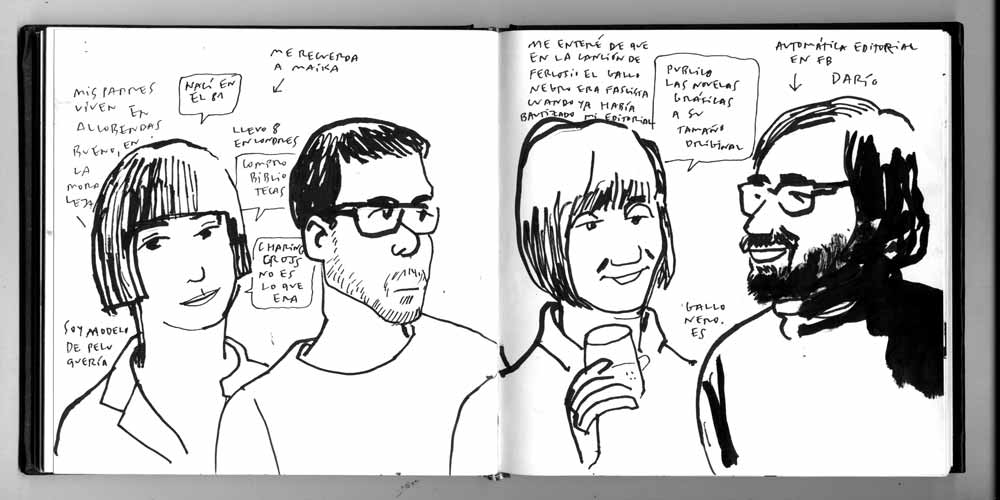 MIS PADRES
VIVEN EN
ALCOBENDAS
BUENO, EN
LA
MORA
LEJA
NACÍ EN
EL 81
ME RECUERDA
A MAIKA
LLEVO 8
EN LONDRES
COMPRO
BIBLIO
TECAS
CHARING
CROSS
NO ES
LO QUE
ERA
SOY MODELO
DE PELU
QUERÍA
ME ENTERÉ DE QUE
EN LA CANCIÓN DE
FERLOSIO EL GALLO
NEGRO ERA FASCISTA
CUANDO YA HABÍA
BAUTIZADO MI EDITORIAL
PUBLICO
LAS NOVELAS
GRÁFICAS
A SU
TAMAÑO
ORIGINAL
AUTOMÁTICA EDITORIAL
EN FB
DARÍO
GALLO
NERO.
ES